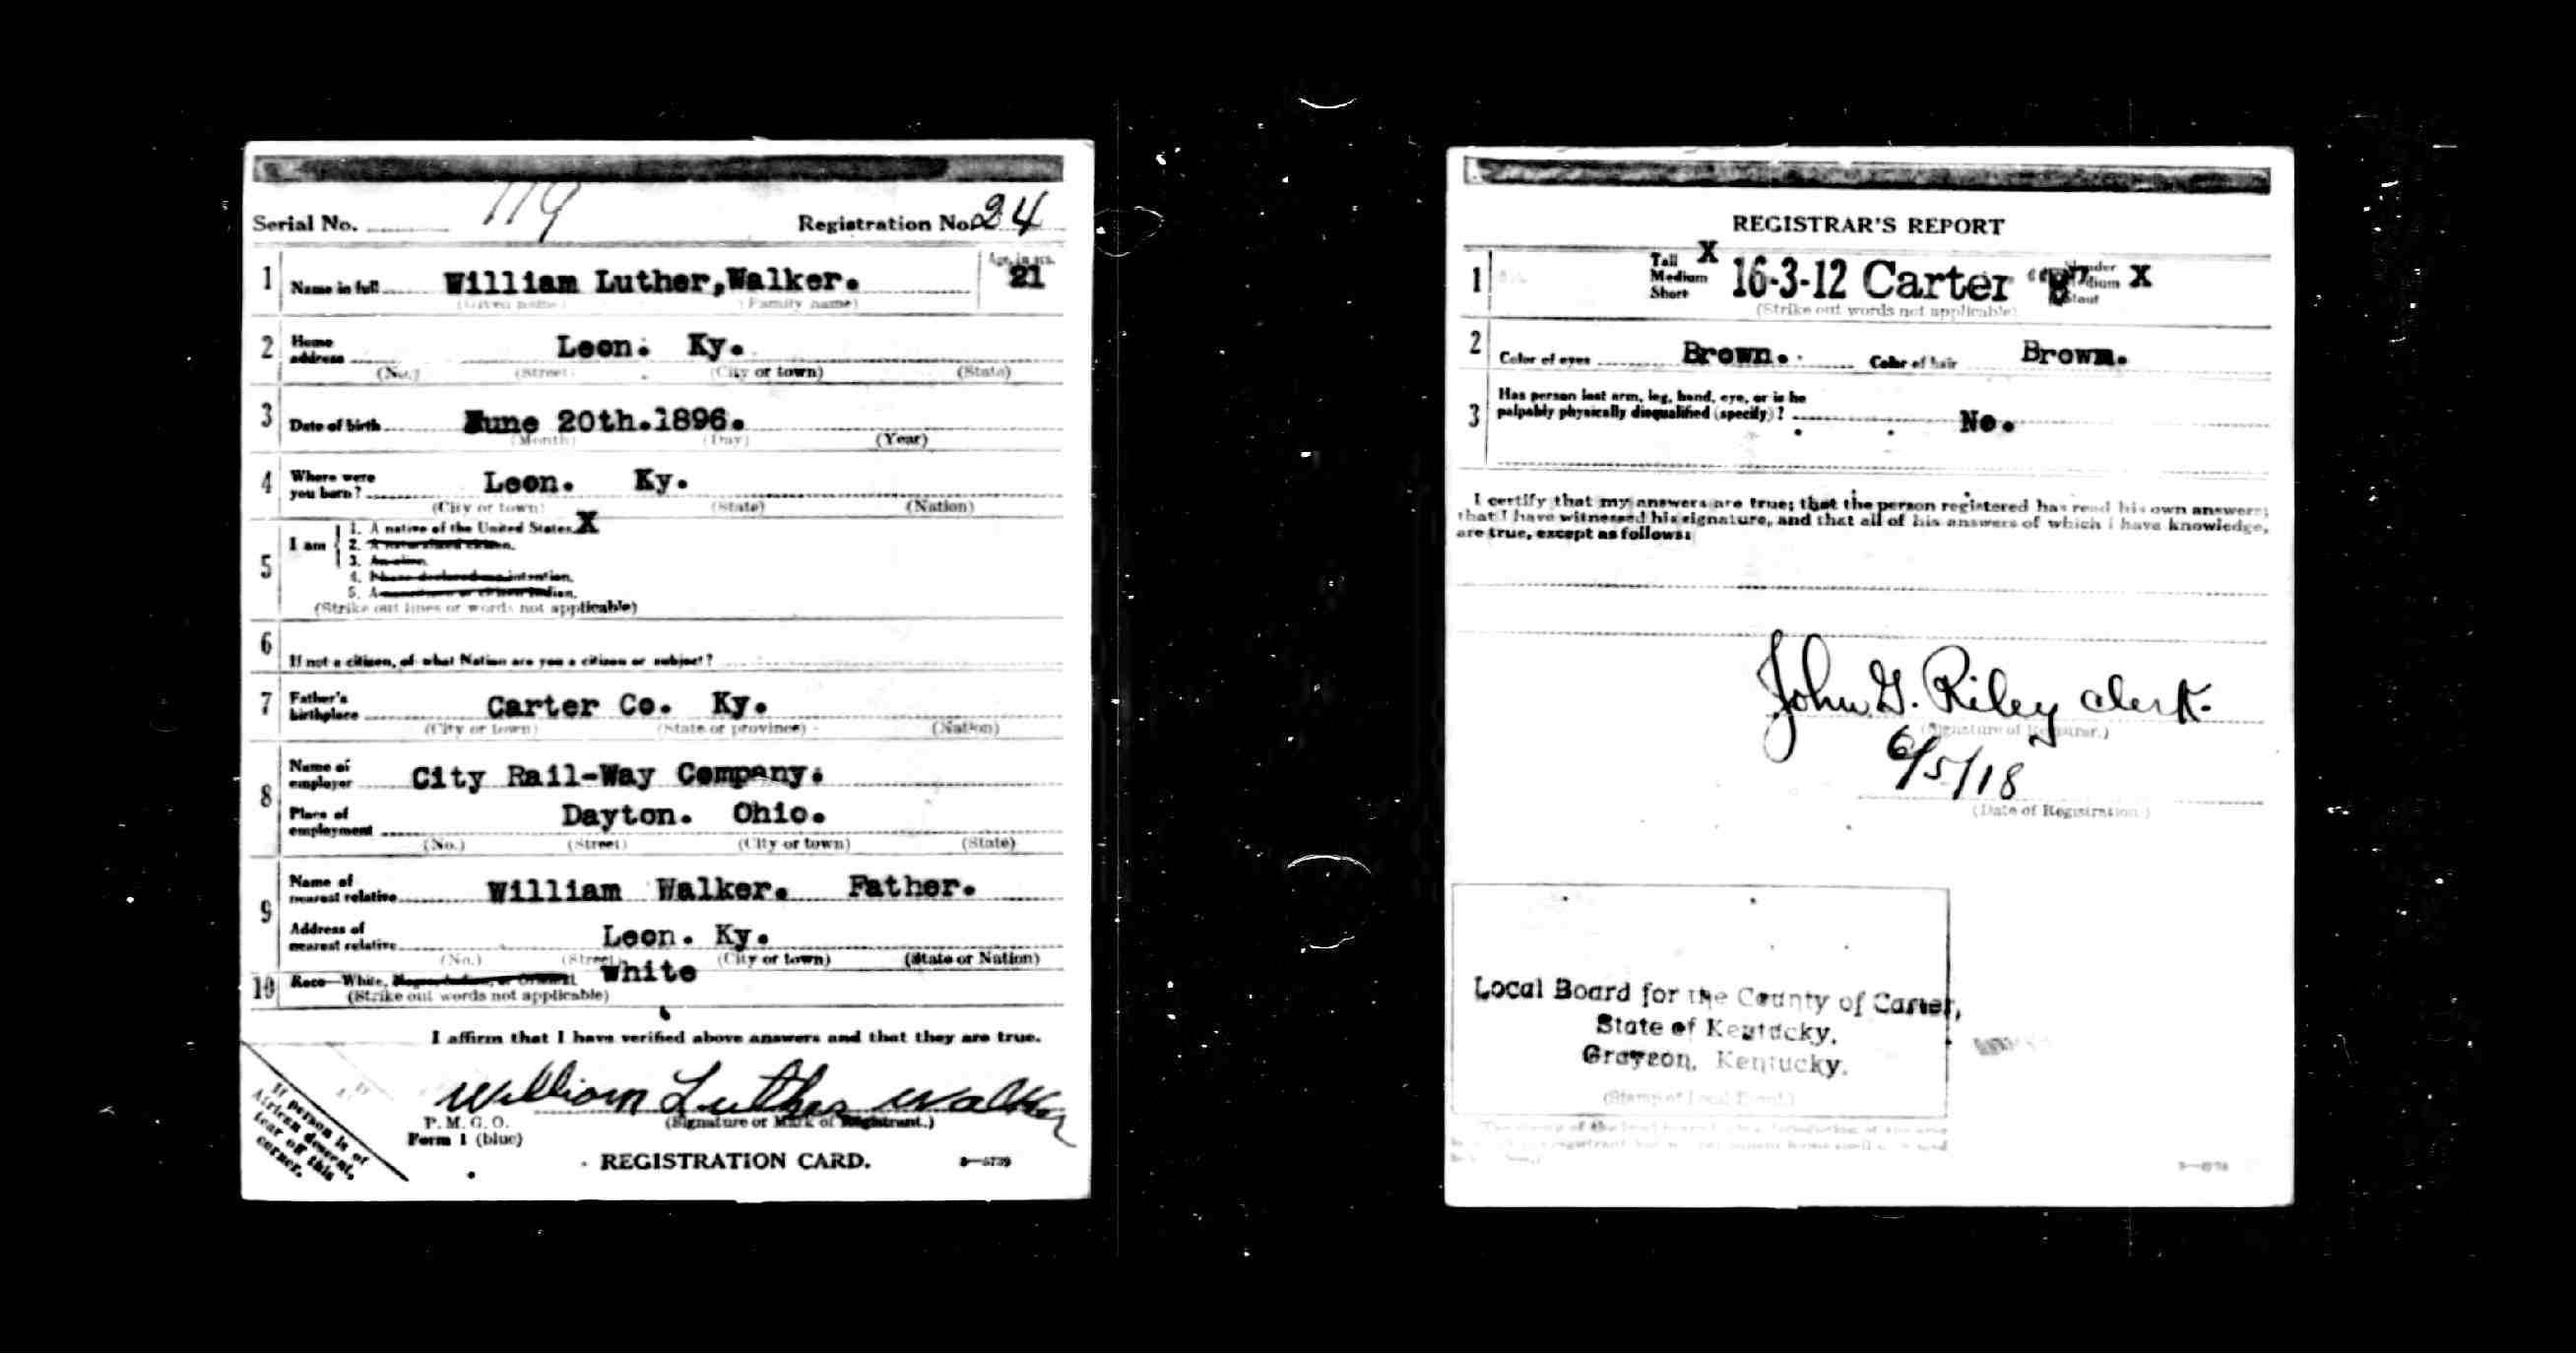 Serial No. 119 Registration No. 24
1 Name in full William Luther, Walker. Age, in yrs. 21
(Given name) (Family name)
2 Home address Leon. Ky.
(No.) (Street) (City or town) (State)
3 Date of birth June 20th. 1896.
(Month) (Day) (Year)
4 Where were you born? Leon. Ky.
(City or town) (State) (Nation)
5 I am
1. A native of the United States. X
2. A naturalized citizen.
3. An alien.
4. I have declared my intention.
5. A noncitizen or citizen Indian.
(Strike out lines or words not applicable)
6 If not a citizen, of what Nation are you a citizen or subject?
7 Father's birthplace Carter Co. Ky.
(City or town) (State or province) (Nation)
8 Name of employer City Rail-Way Company.
Place of employment Dayton. Ohio.
(No.) (Street) (City or town) (State)
9 Name of nearest relative William Walker. Father.
Address of nearest relative Leon. Ky.
(No.) (Street) (City or town) (State or Nation)
10 Race—White, Negro, Indian, or Oriental. White
(Strike out words not applicable)
I affirm that I have verified above answers and that they are true.
William Luther Walker
(Signature or Mark of Registrant.)
P. M. G. O.
Form 1 (blue)
REGISTRATION CARD.
If person is of
African descent,
tear off this
corner.
REGISTRAR'S REPORT
1 Tall X
Medium
Short
16-3-12 Carter
Slender
Medium X
Stout
(Strike out words not applicable)
2 Color of eyes Brown. Color of hair Brown.
3 Has person lost arm, leg, hand, eye, or is he
palpably physically disqualified (specify)? No.
I certify that my answers are true; that the person registered has read his own answers;
that I have witnessed his signature, and that all of his answers of which I have knowledge,
are true, except as follows:
John G. Riley Clerk.
(Signature of Registrar.)
6/5/18
(Date of Registration)
Local Board for the County of Carter,
State of Kentucky.
Grayson, Kentucky.
(Stamp of Local Board.)